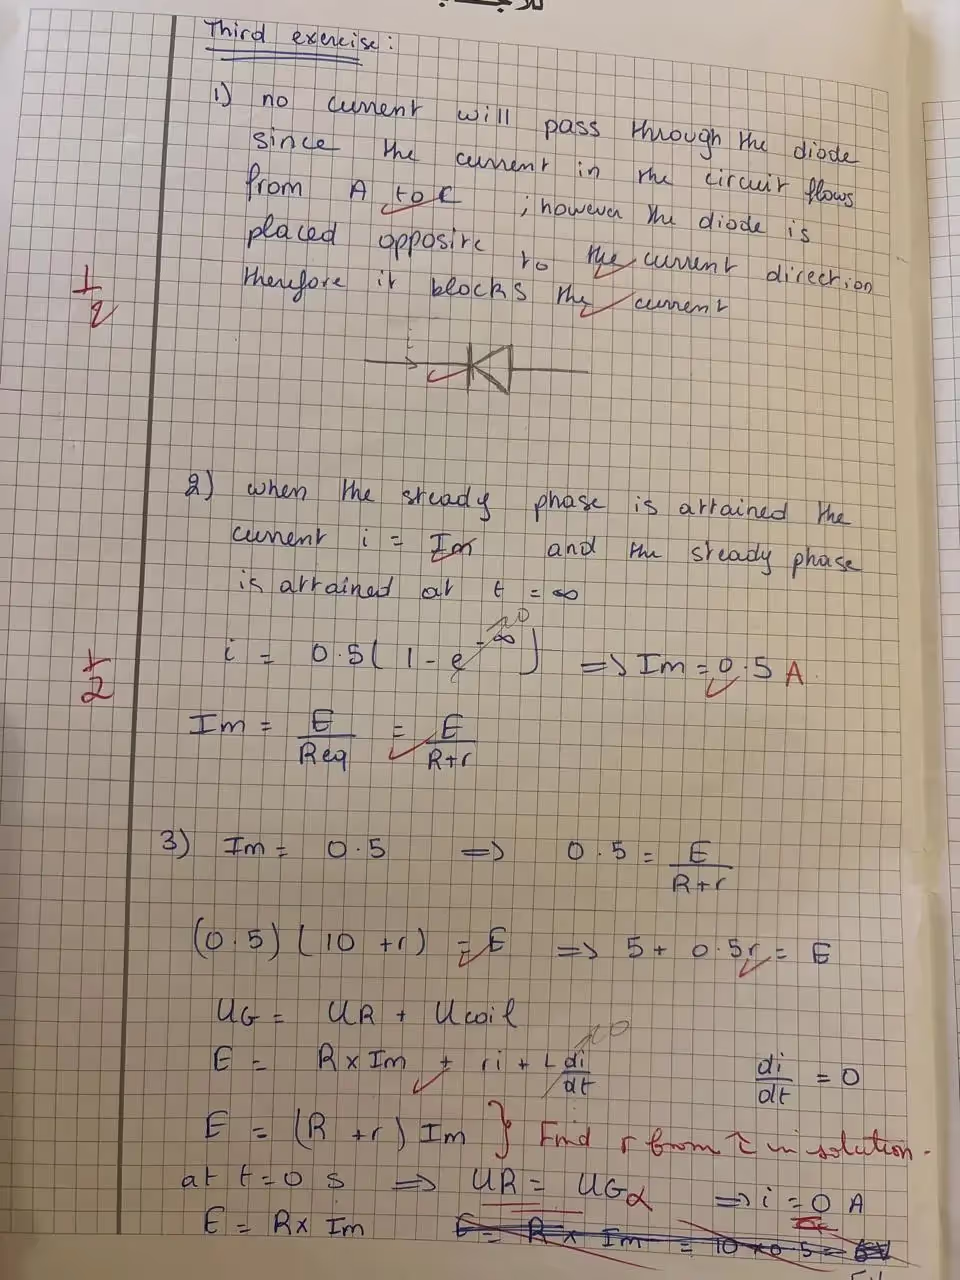 Third exercise:
1) no current will pass through the diode
since the current in the circuit flows
from A to C ; however the diode is
placed opposite to the current direction
therefore it blocks the current
1/2
i
2) when the steady phase is attained the
current i = Im and the steady phase
is attained at t = ∞
i = 0.5( 1 - e^-∞ ) → 0 => Im = 0.5 A
1/2
Im = E/Req = E/R+r
3) Im = 0.5 => 0.5 = E/R+r
(0.5) (10 + r) = E => 5 + 0.5r = E
UG = UR + Ucoil
E = R x Im + ri + L di/dt → 0 di/dt = 0
E = (R + r) Im } Find r from τ in solution.
at t = 0 s => UR = UG => i = 0 A
E = R x Im E = R x Im = 10 x 0.5 =